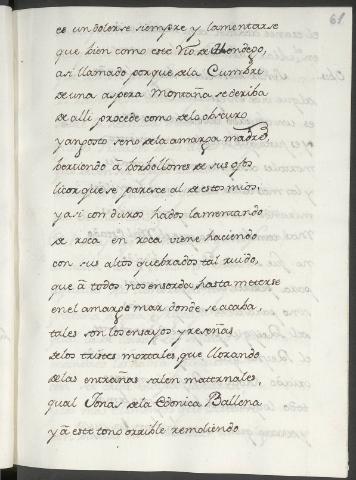 61
es un dolerse siempre y lamentarse
que bien como este Rio de Mondego,
asi llamado porque de la Cumbre
de una aspera Montaña se deriba
de alli procede como de lo obscuro
y angosto seno de la amarga madre,
hertiendo à borbollones de sus ojos
licor que se paresce al de estos mios;
y asi con duros hados lamentando
de roca en roca viene haciendo
con sus altos quebrados tal ruido,
que à todos nos ensorda, hasta meterse
en el amargo mar donde se acaba,
tales son los ensayos y reseñas
de los tristes mortales, que llorando
de las entrañas salen maternales,
qual Jonas de la Ballena
y à este tono orrible remoliendo